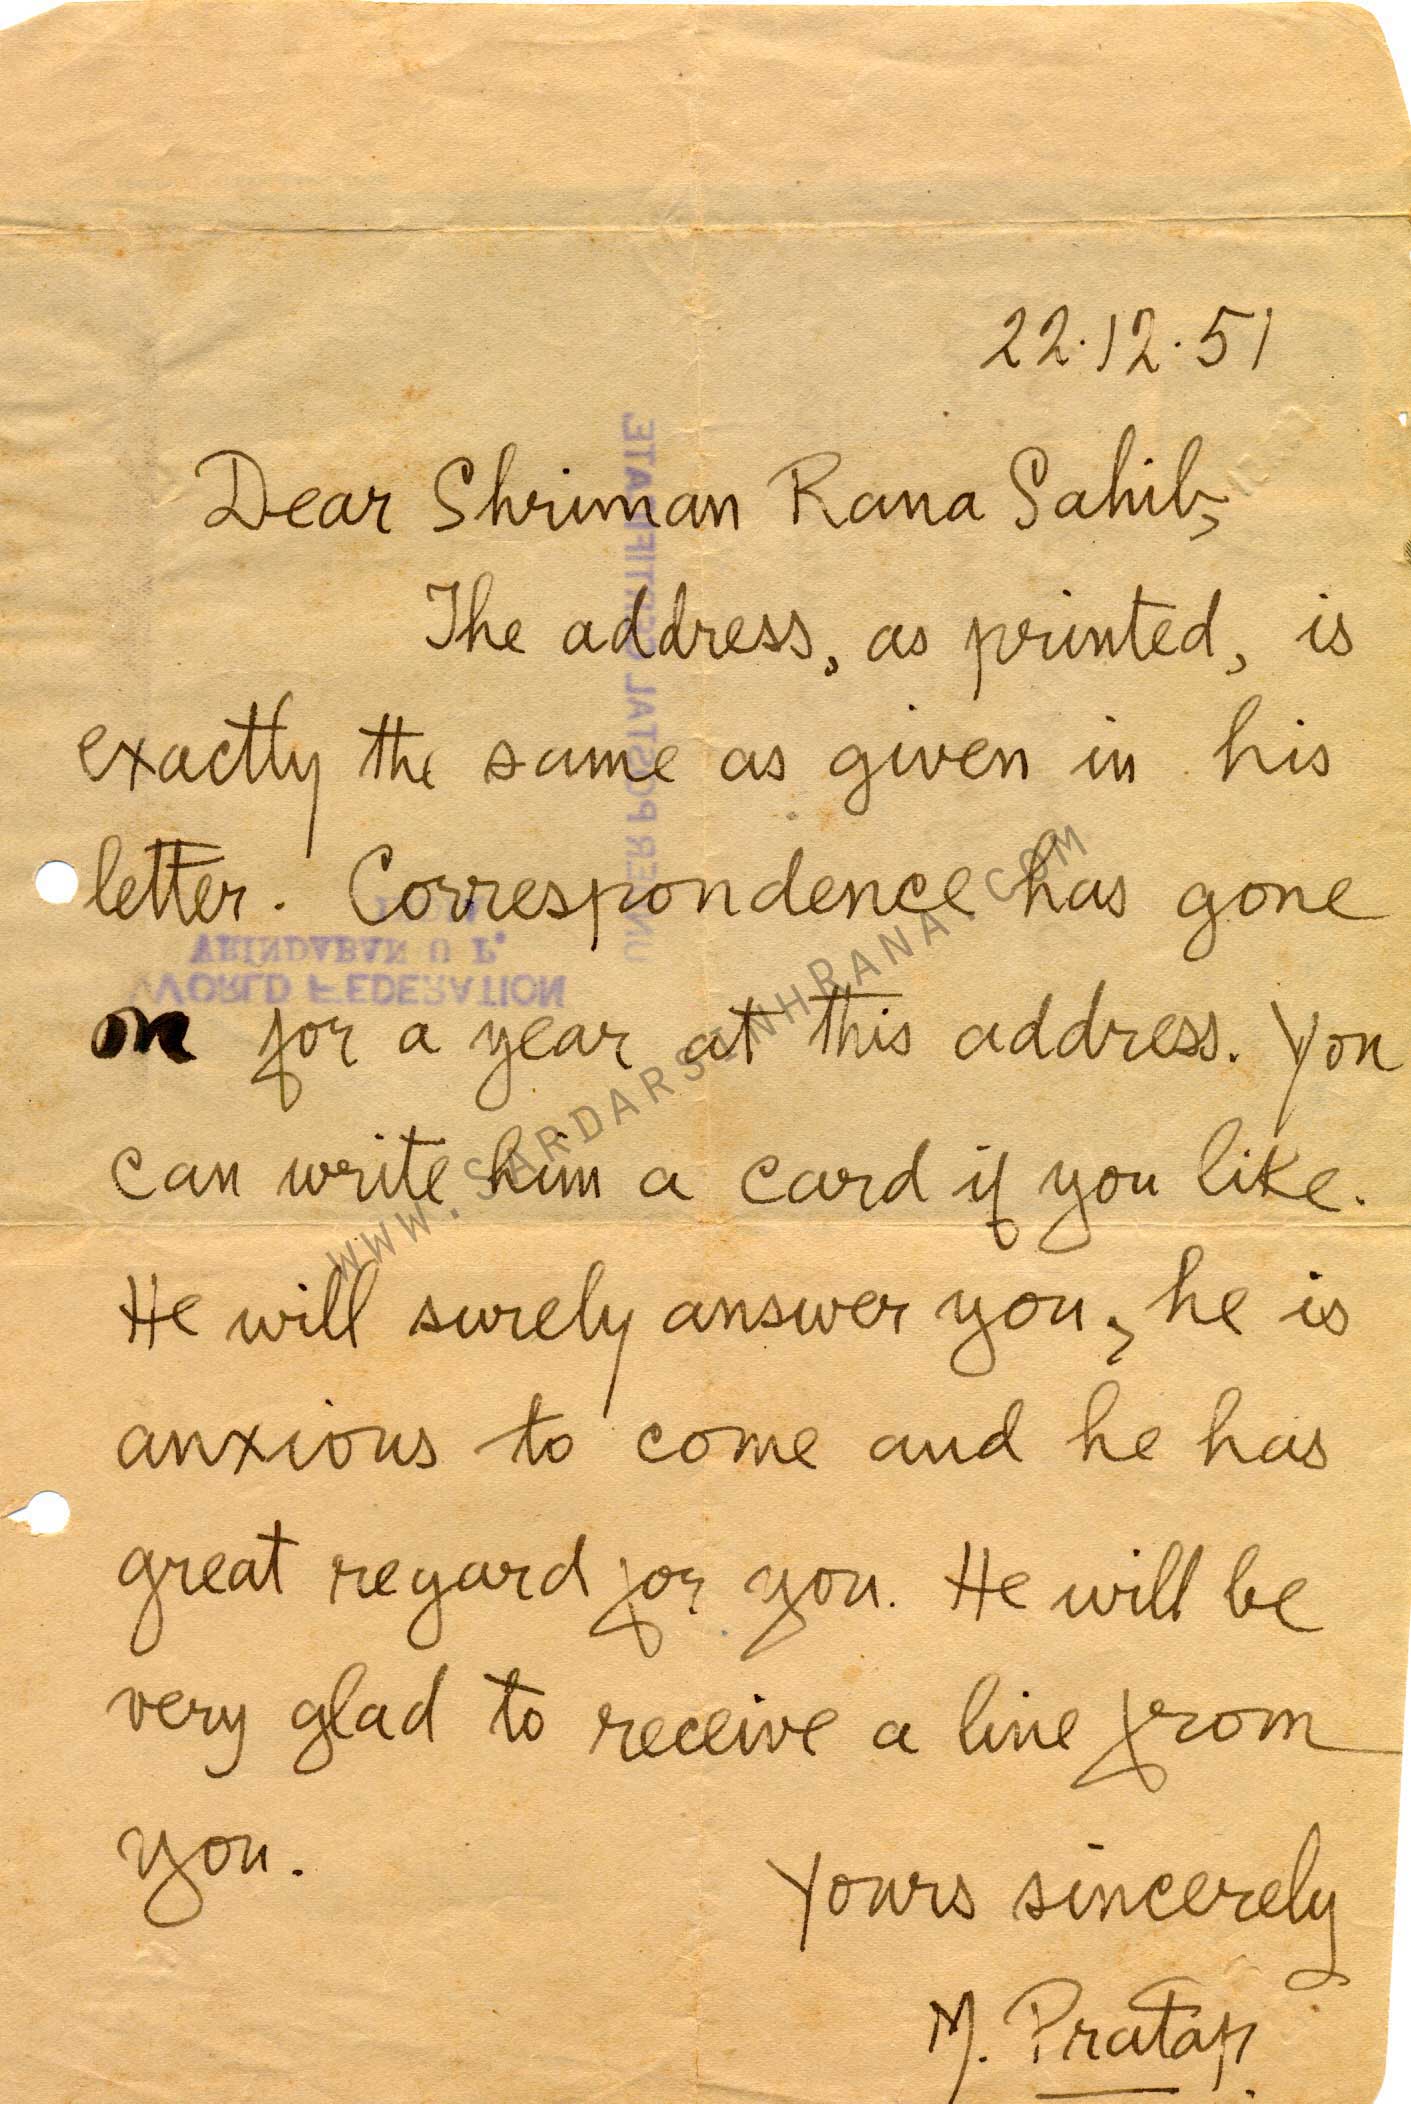 22.12.51
Dear Shriman Rana Sahib,
The address, as printed, is
exactly the same as given in his
letter. Correspondence has gone
on for a year at this address. You
can write him a card if you like.
He will surely answer you, he is
anxious to come and he has
great regard for you. He will be
very glad to receive a line from
you.
Yours sincerely
M. Pratap.
UNDER POSTAL CERTIFICATE.
WORLD FEDERATION
WWW.SARDARSINHRANA.COM